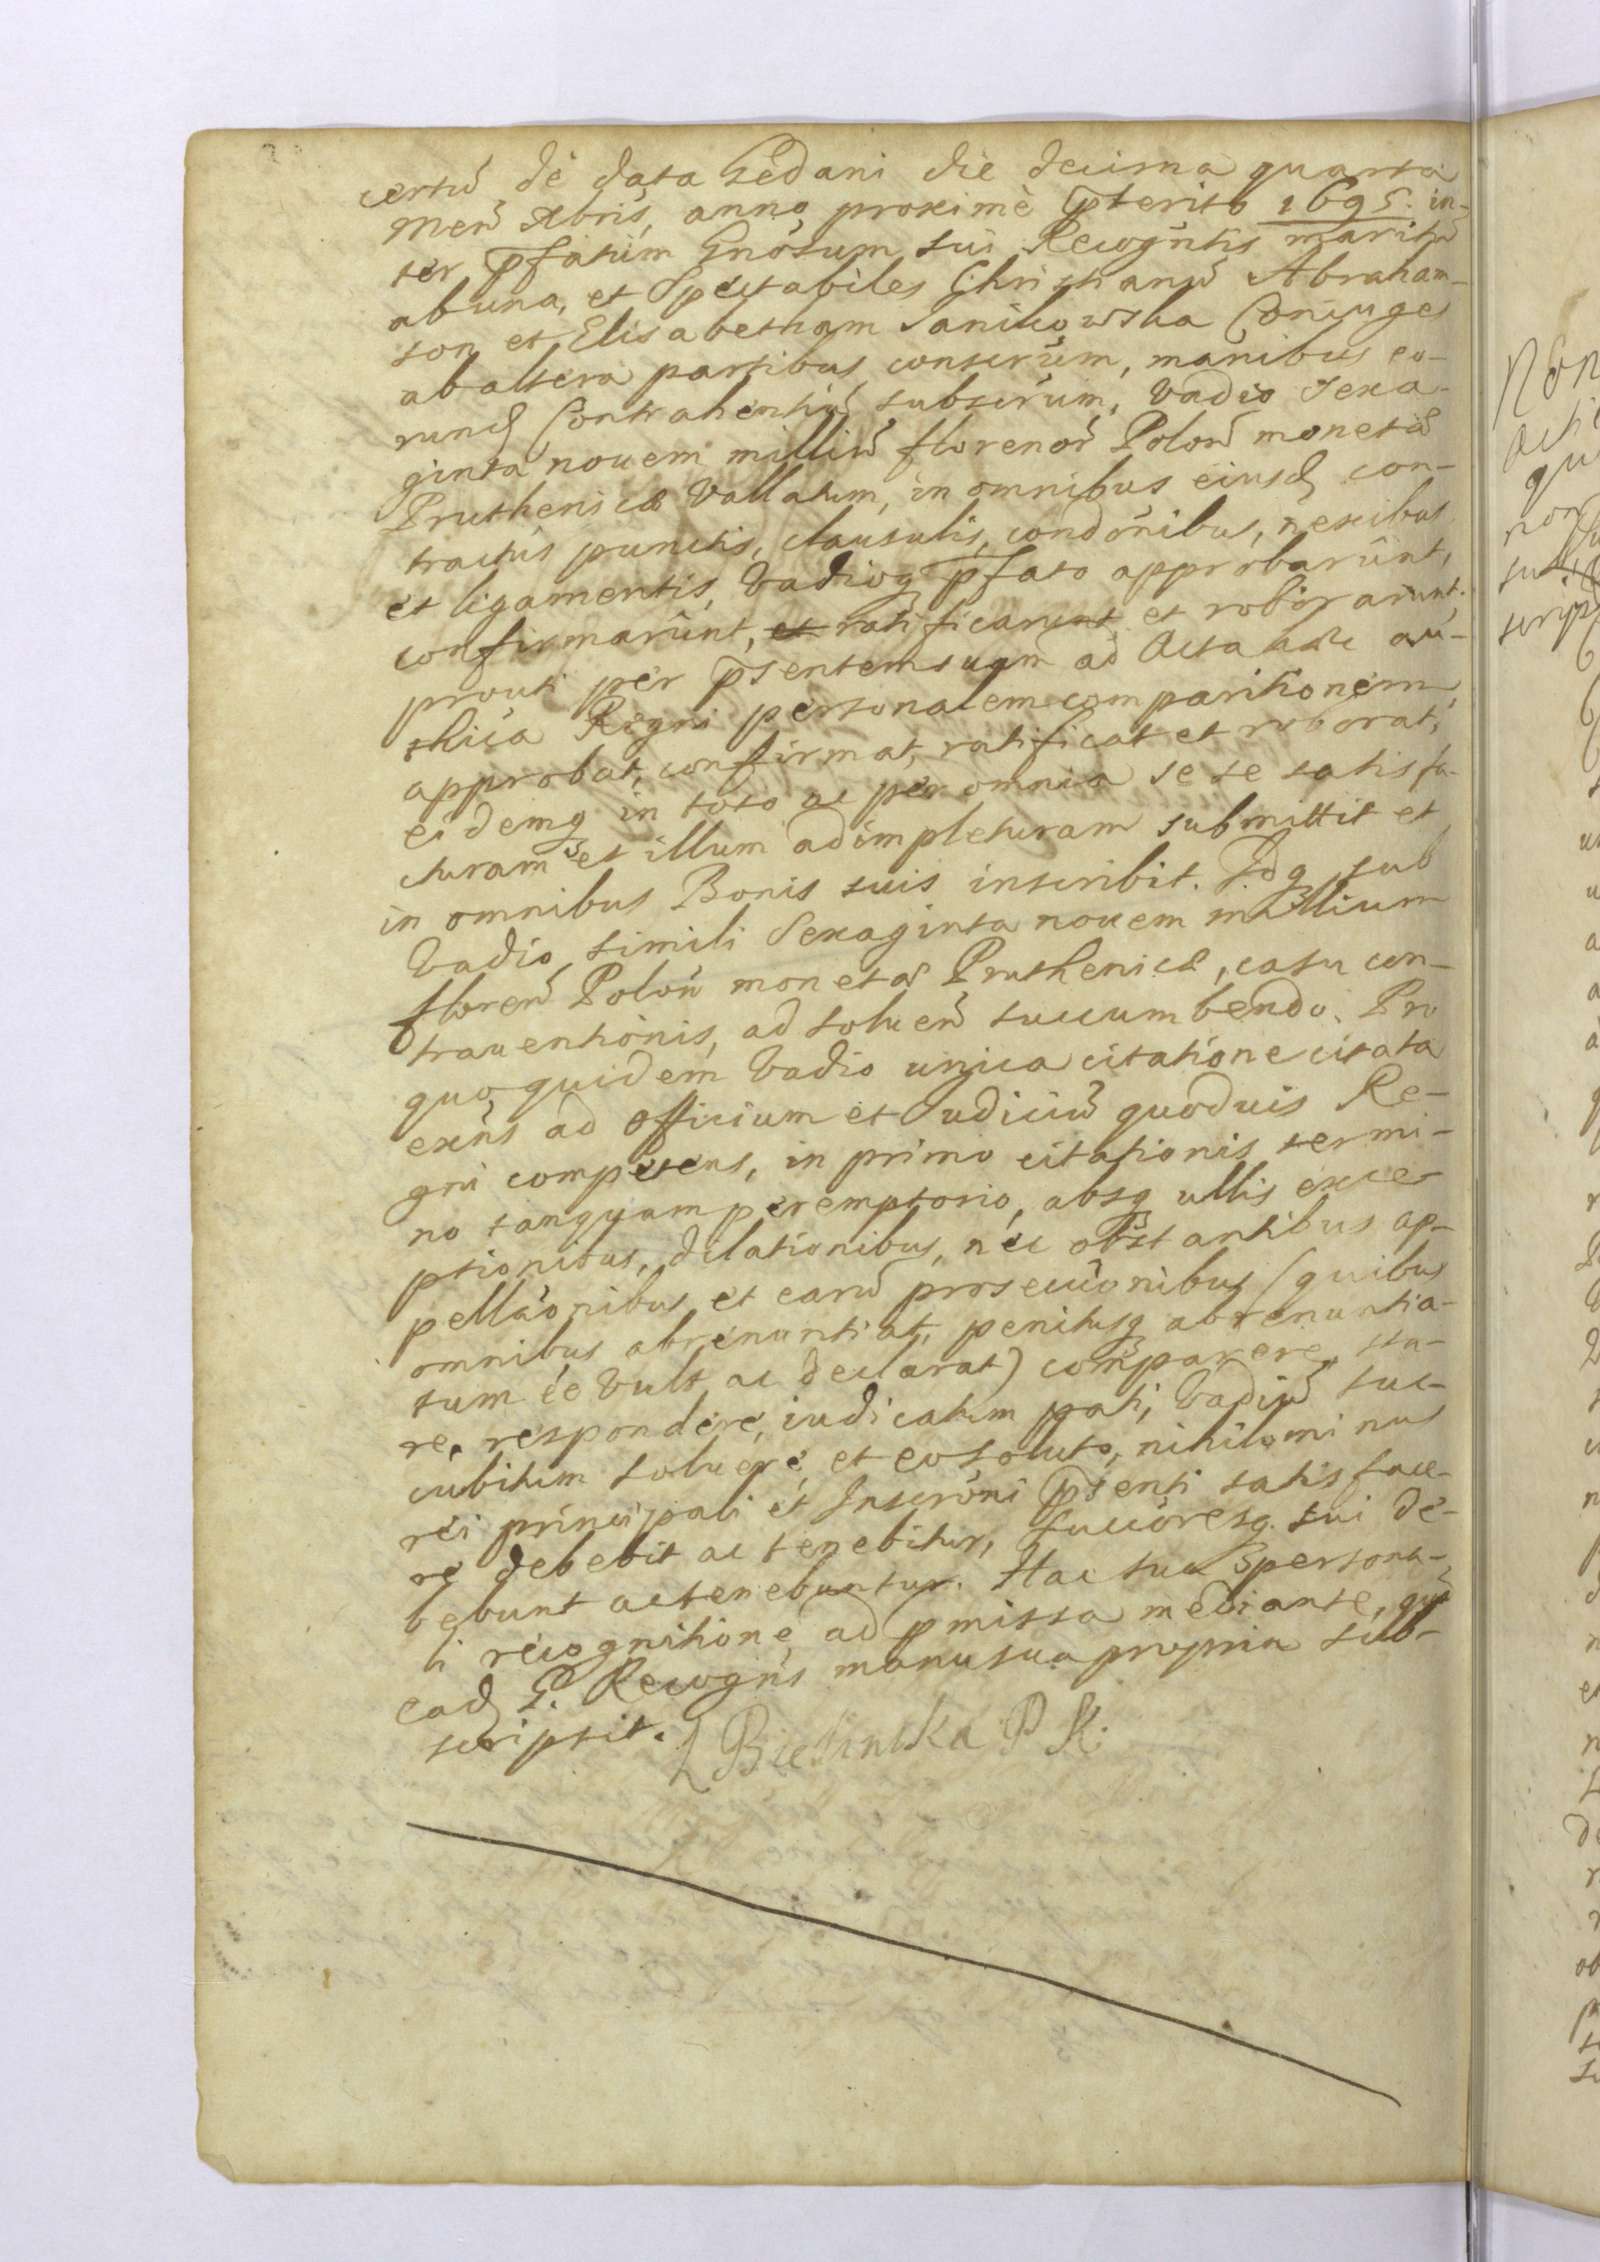 certũ de data Gedani die decima quarta
Men̄ Xbris, anno proxime p̄terito 1695. in-
ter p̄fatum Gnõsum sui Recogn̄tis maritũ
ab una, et Spectabiles Christianũ Abraham-
son et Elisabetham Janikowska Coniuges
ab altera partibus conscr̄um, manibus eo-
rund Contrahentiũ subscr̄um, Vadio Sexa-
ginta novem milliũ florenor̃ Polon̄ monetæ
Pruthenicæ Vallatum, in omnibus eiusd con-
tractus punctis, clausulis, condõnibus, nexibus
et ligamentis, Vadioq p̄fato approbarunt,
confirmarunt, et ratificarunt et roborarunt.
prouti per p̄sentem suam ad Acta hæc au-
thica Regni personalem comparitionem
approbat, confirmat, ratificat et roborat,
eidemq in toto ac per omnia se se satisfa-
cturam et illum adimpleturam submittit et
in omnibus Bonis suis inscribit. Idq sub
Vadio simili Sexaginta novem millium
floren̄ Polon̄ monetæ Pruthenicæ, casu con-
traventionis, ad solven̄ succumbendo. Pro
quo quidem Vadio unica citatione citata
exn̄s ad officium et Iudiciũ quodvis Re-
gni competens, in primo citationis termi-
no tanquam peremptorio, absq ullis exce-
ptionibus, dilationibus, nec obstantibus ap-
pellaõnibus et earũ prosecuõnibus (quibus
omnibus abrenuntiat, penitusq abrenuntia-
tum ee vult ac declarat) comparere, sta-
re, respondere, iudicatum pati, Vadiũ suc-
cubitum solvere, et eo soluto, nihilominus
rei principali et Inscrõni p̄senti satisface-
re debebit ac tenebitur, succõresq. sui de-
bebunt ac tenebuntur. Hac sua persona-
li recognitione ad p̄missa mediante, quã
ead G. Recogn̄s manu sua propria sub-
scripsit. L Bielinska P K.